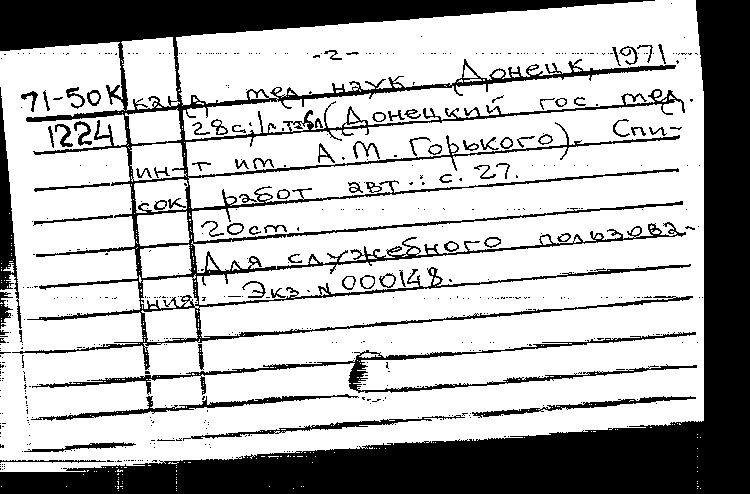 -2-
71-50К канд. мед. наук. Донецк, 1971.
1224 28с; 1л.табл (Донецкий гос. мед.
ин-т им. А.М. Горького). Спи-
сок работ авт.: с. 27.
20 cm.
Для служебного пользова-
ния. Экз. N 000148.